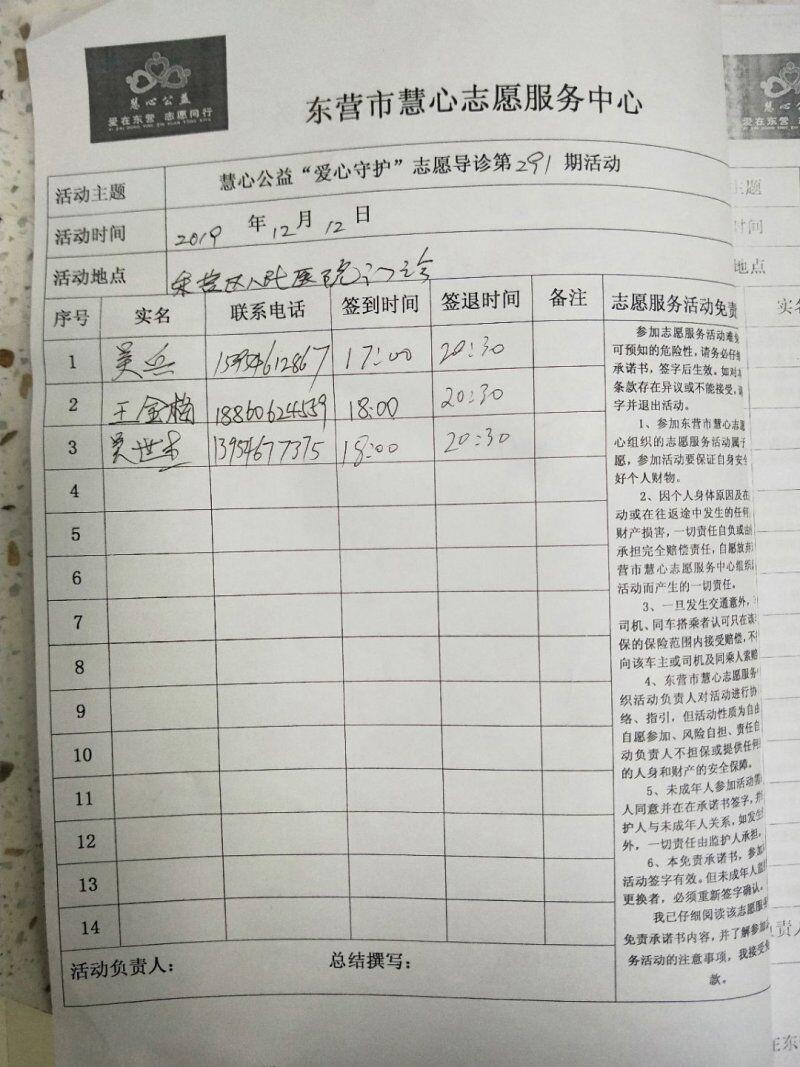 慧心公益
爱在东营 志愿同行
东营市慧心志愿服务中心
活动主题 慧心公益“爱心守护”志愿导诊第291期活动
活动时间 2019年12月12日
活动地点 东营区人民医院门诊
序号 实名 联系电话 签到时间 签退时间 备注 志愿服务活动免责
1 吴兵 15954612867 17:00 20:30
2 王金梅 18860624539 18:00 20:30
3 吴世杰 13954677375 18:00 20:30
4
5
6
7
8
9
10
11
12
13
14
活动负责人： 总结撰写：
参加志愿服务活动难免
可预知的危险性，请务必仔细
承诺书，签字后生效。如对本
条款存在异议或不能接受，请
字并退出活动。
1、参加东营市慧心志愿
心组织的志愿服务活动属于
愿，参加活动要保证自身安全
好个人财物。
2、因个人身体原因及在
动或在往返途中发生的任何
财产损害，一切责任自负或由
承担完全赔偿责任，自愿放弃
营市慧心志愿服务中心组织
活动而产生的一切责任。
3、一旦发生交通意外，
司机、同车搭乘者认可只在该
保的保险范围内接受赔偿，不
向该车主或司机及同乘人索赔
4、东营市慧心志愿服务
织活动负责人对活动进行协
络、指引，但活动性质为自由
自愿参加、风险自担、责任自
动负责人不担保或提供任何
的人身和财产的安全保障。
5、未成年人参加活动需
人同意并在在承诺书签字，并
护人与未成年人关系，如发生
外，一切责任由监护人承担。
6、本免责承诺书，参加
活动签字有效。但未成年人监
更换者，必须重新签字确认。
我已仔细阅读该志愿服务
免责承诺书内容，并了解参加
务活动的注意事项，我接受免
款。
慧心公益
主题
时间
地点
实名
责人
在东